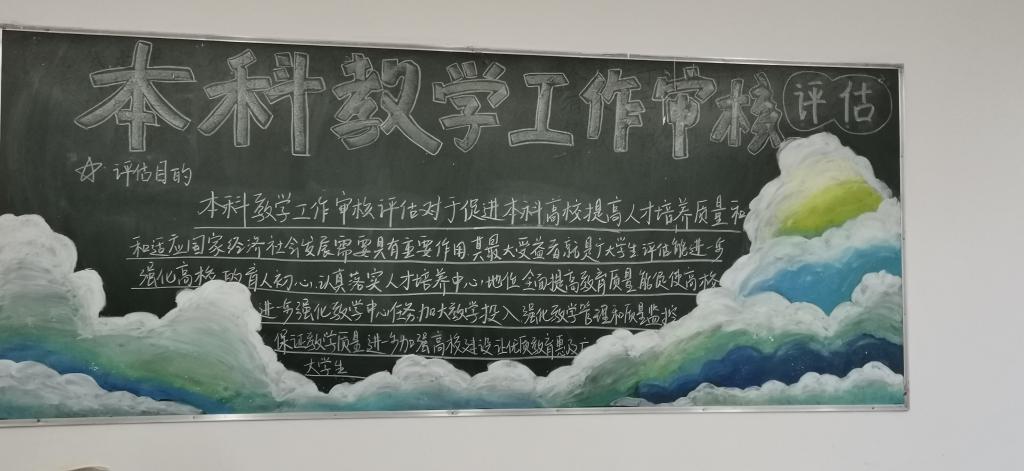 本科教学工作审核评估
☆ 评估目的
本科教学工作审核评估对于促进本科高校提高人才培养质量和
和适应国家经济社会发展需要具有重要作用其最大受益者就是广大学生评估能进一步
强化高校的育人初心,认真落实人才培养中心地位全面提高教育质量能促使高校
进一步强化教学中心任务加大教学投入强化教学管理和质量监控
保证教学质量进一步加强高校建设让优质教育惠及广
大学生